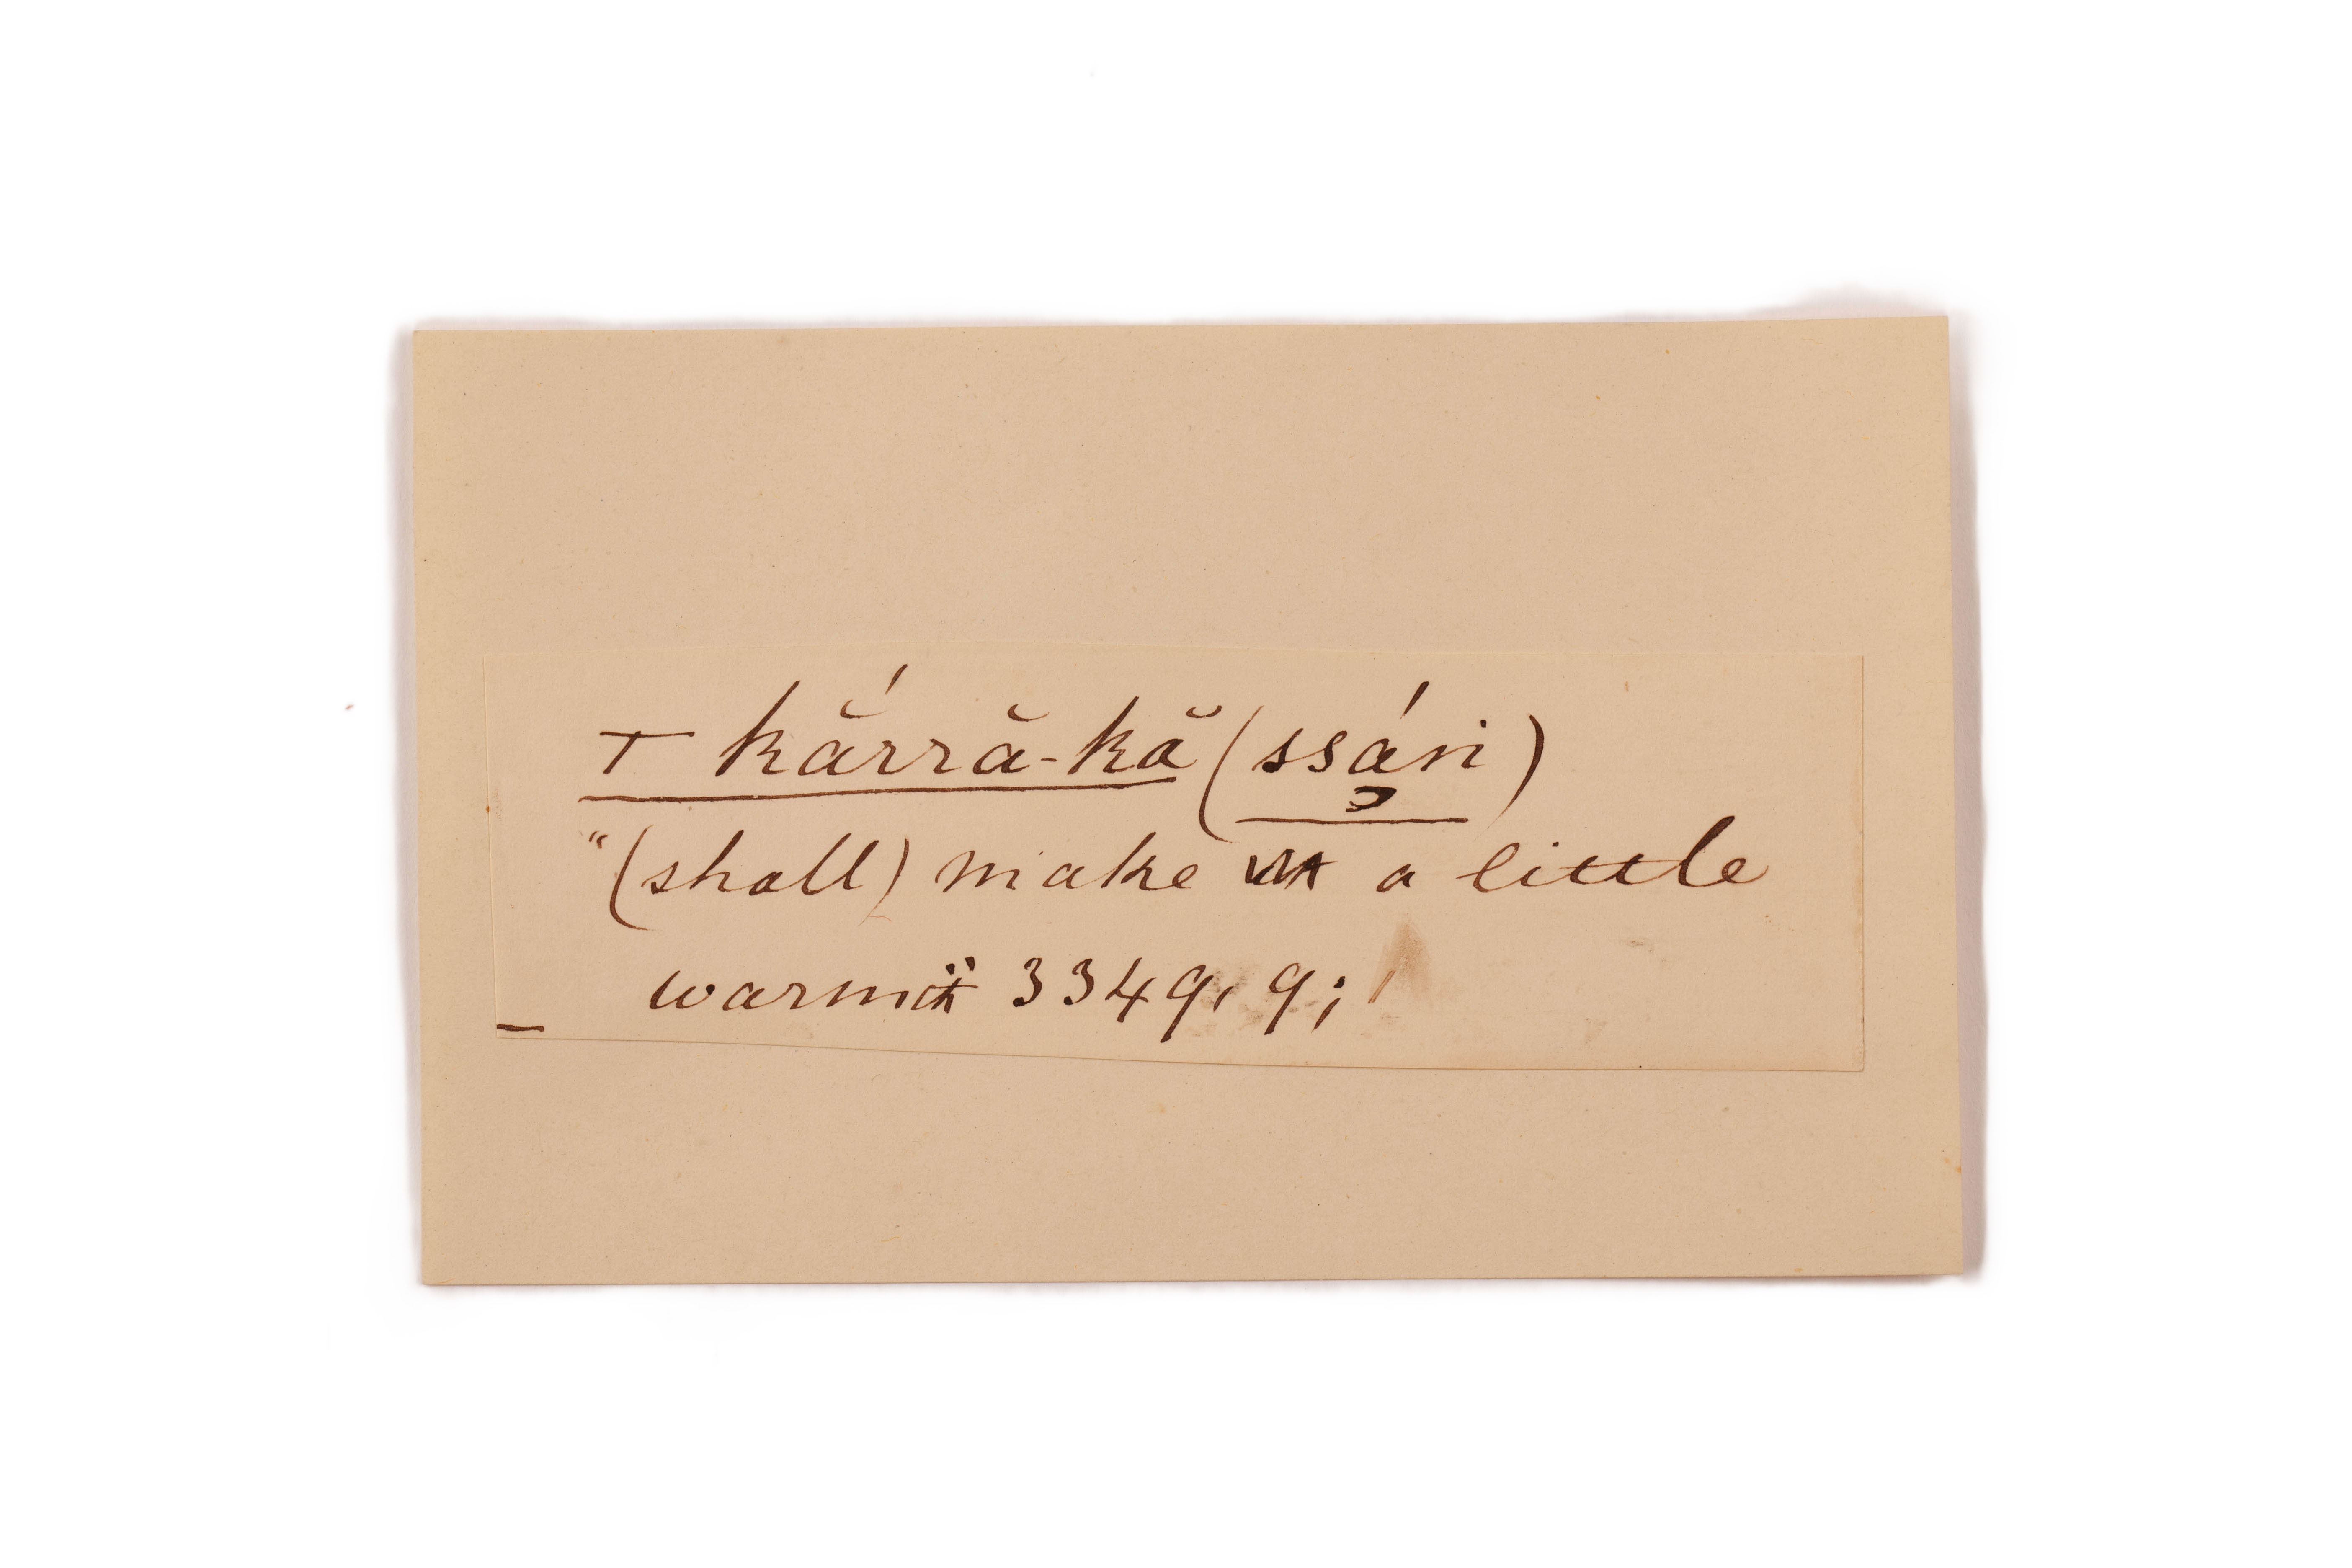 ⊤ kắrră-kă (ssá̱ri)
"(shall) make a little
warm" 3349, 9;